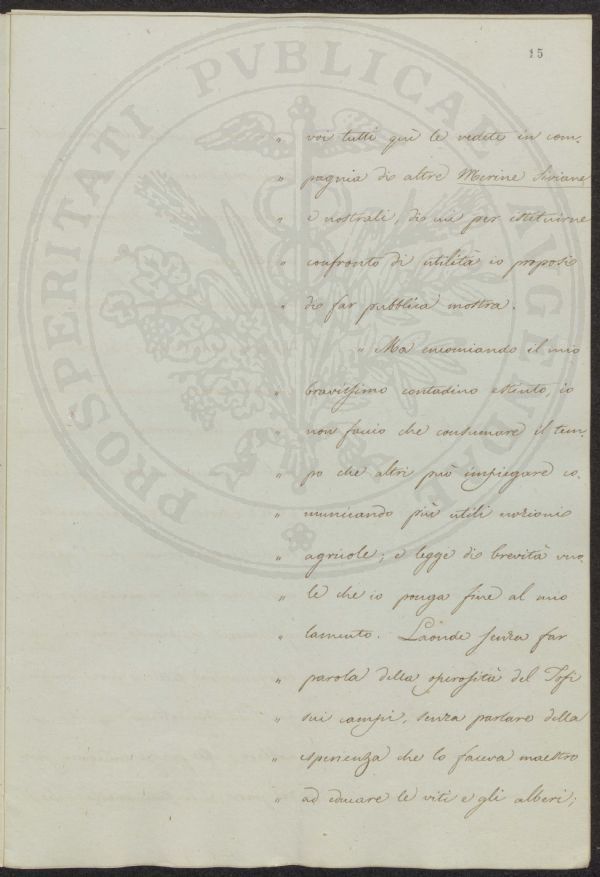 15
PROSPERITATI PVBLICAE AVGENDAE
„ voi tutti quì le vedete in com-
„ pagnia di altre Merine Siviane
„ e nostrali, di cui per istituirne
„ confronto di utilità io proposi
„ di far pubblica mostra.
„ Ma encomiando il mio
„ bravissimo contadino estinto, io
„ non faccio che consumare il tem-
„ po che altri può impiegare co-
„ municando più utili nozioni
„ agricole; e legge di brevità vuo-
„ le che io ponga fine al mio
„ lamento. Laonde senza far
„ parola della operosità del Tosi
„ sui campi, senza parlare della
„ sperienza che lo faceva maestro
„ ad educare le viti e gli alberi;